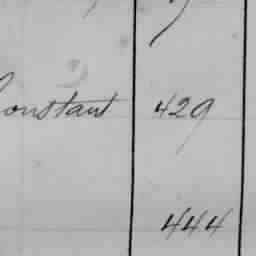 Constant 429
444